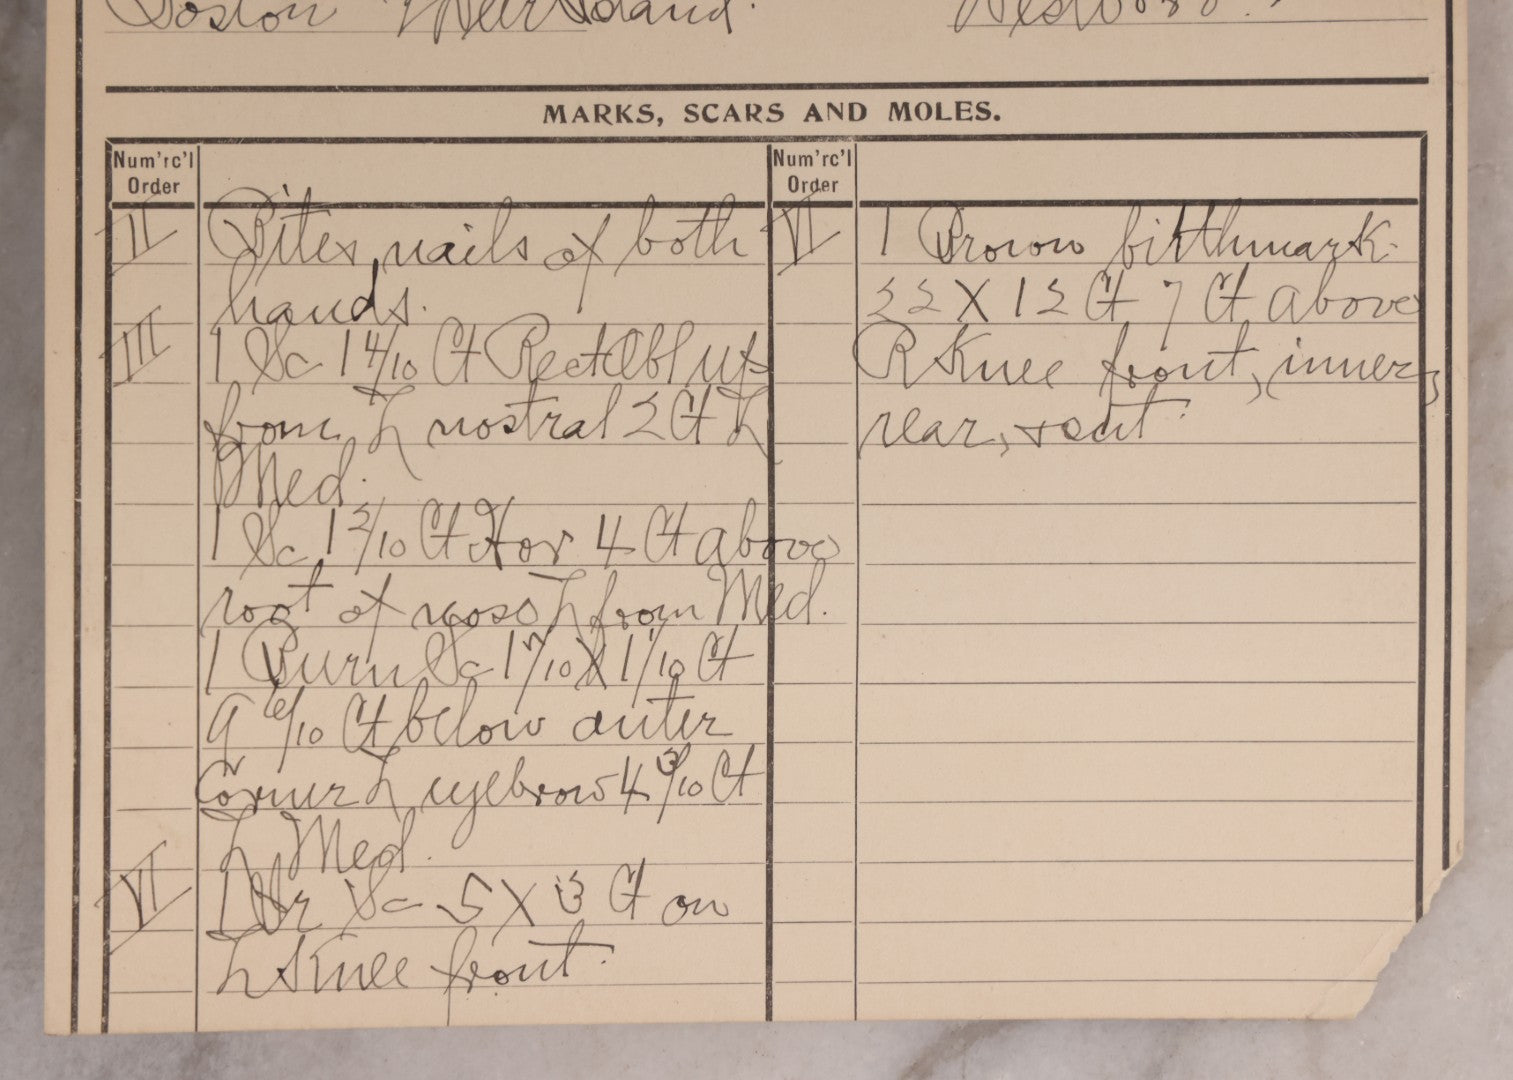 Boston Deer Island.
MARKS, SCARS AND MOLES.
Num'rc'l Order
Num'rc'l Order
II Bites nails of both
hands.
III 1 Sc 1 4/10 Ct Rect Obl up
from L nostral 2 Ct L
Med.
1 Sc 1 2/10 Ct Hor 4 Ct above
root of nose L from Med.
1 Burn Sc 1 7/10 X 1 1/10 Ct
9 6/10 Ct below outer
Corner L eyebrow 4 3/10 Ct
L Med.
VI 1 Sc 5 X 3 Ct on
L Knee front.
VI 1 Brown birthmark
22 X 12 Ct 7 Ct above
R Knee front, inner,
rear, + out.